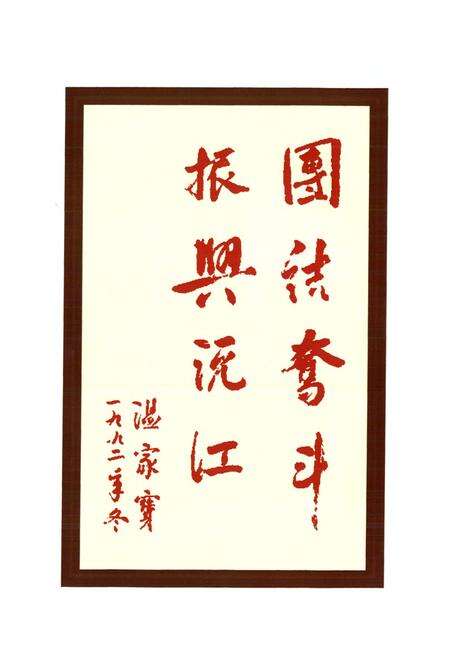 團結奮斗
振興沅江
溫家寶
一九九二年冬